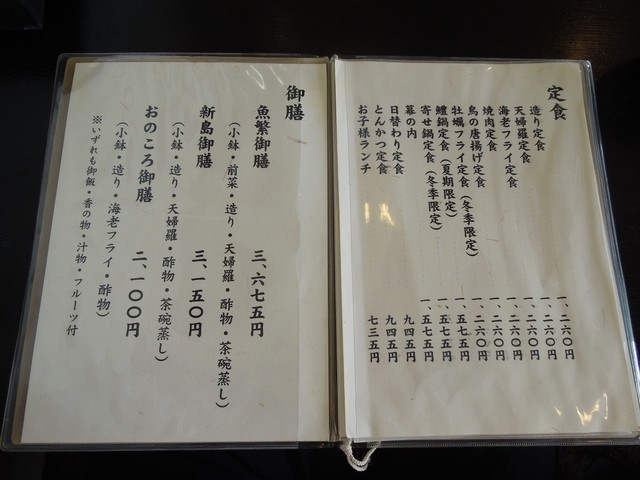 定食
造り定食 一、二六〇円
天婦羅定食 一、二六〇円
海老フライ定食 一、二六〇円
焼肉定食 一、二六〇円
鳥の唐揚げ定食 一、二六〇円
牡蠣フライ定食(冬季限定) 一、二六〇円
鱧鍋定食(夏期限定) 一、五七五円
寄せ鍋定食(冬季限定) 一、五七五円
幕の内 一、五七五円
日替わり定食 九四五円
とんかつ定食 九四五円
お子様ランチ 七三五円
御膳
魚繁御膳 三、六七五円
(小鉢・前菜・造り・天婦羅・酢物・茶碗蒸し)
新島御膳 三、一五〇円
(小鉢・造り・天婦羅・酢物・茶碗蒸し)
おのころ御膳 二、一〇〇円
(小鉢・造り・海老フライ・酢物)
※いずれも御飯・香の物・汁物・フルーツ付